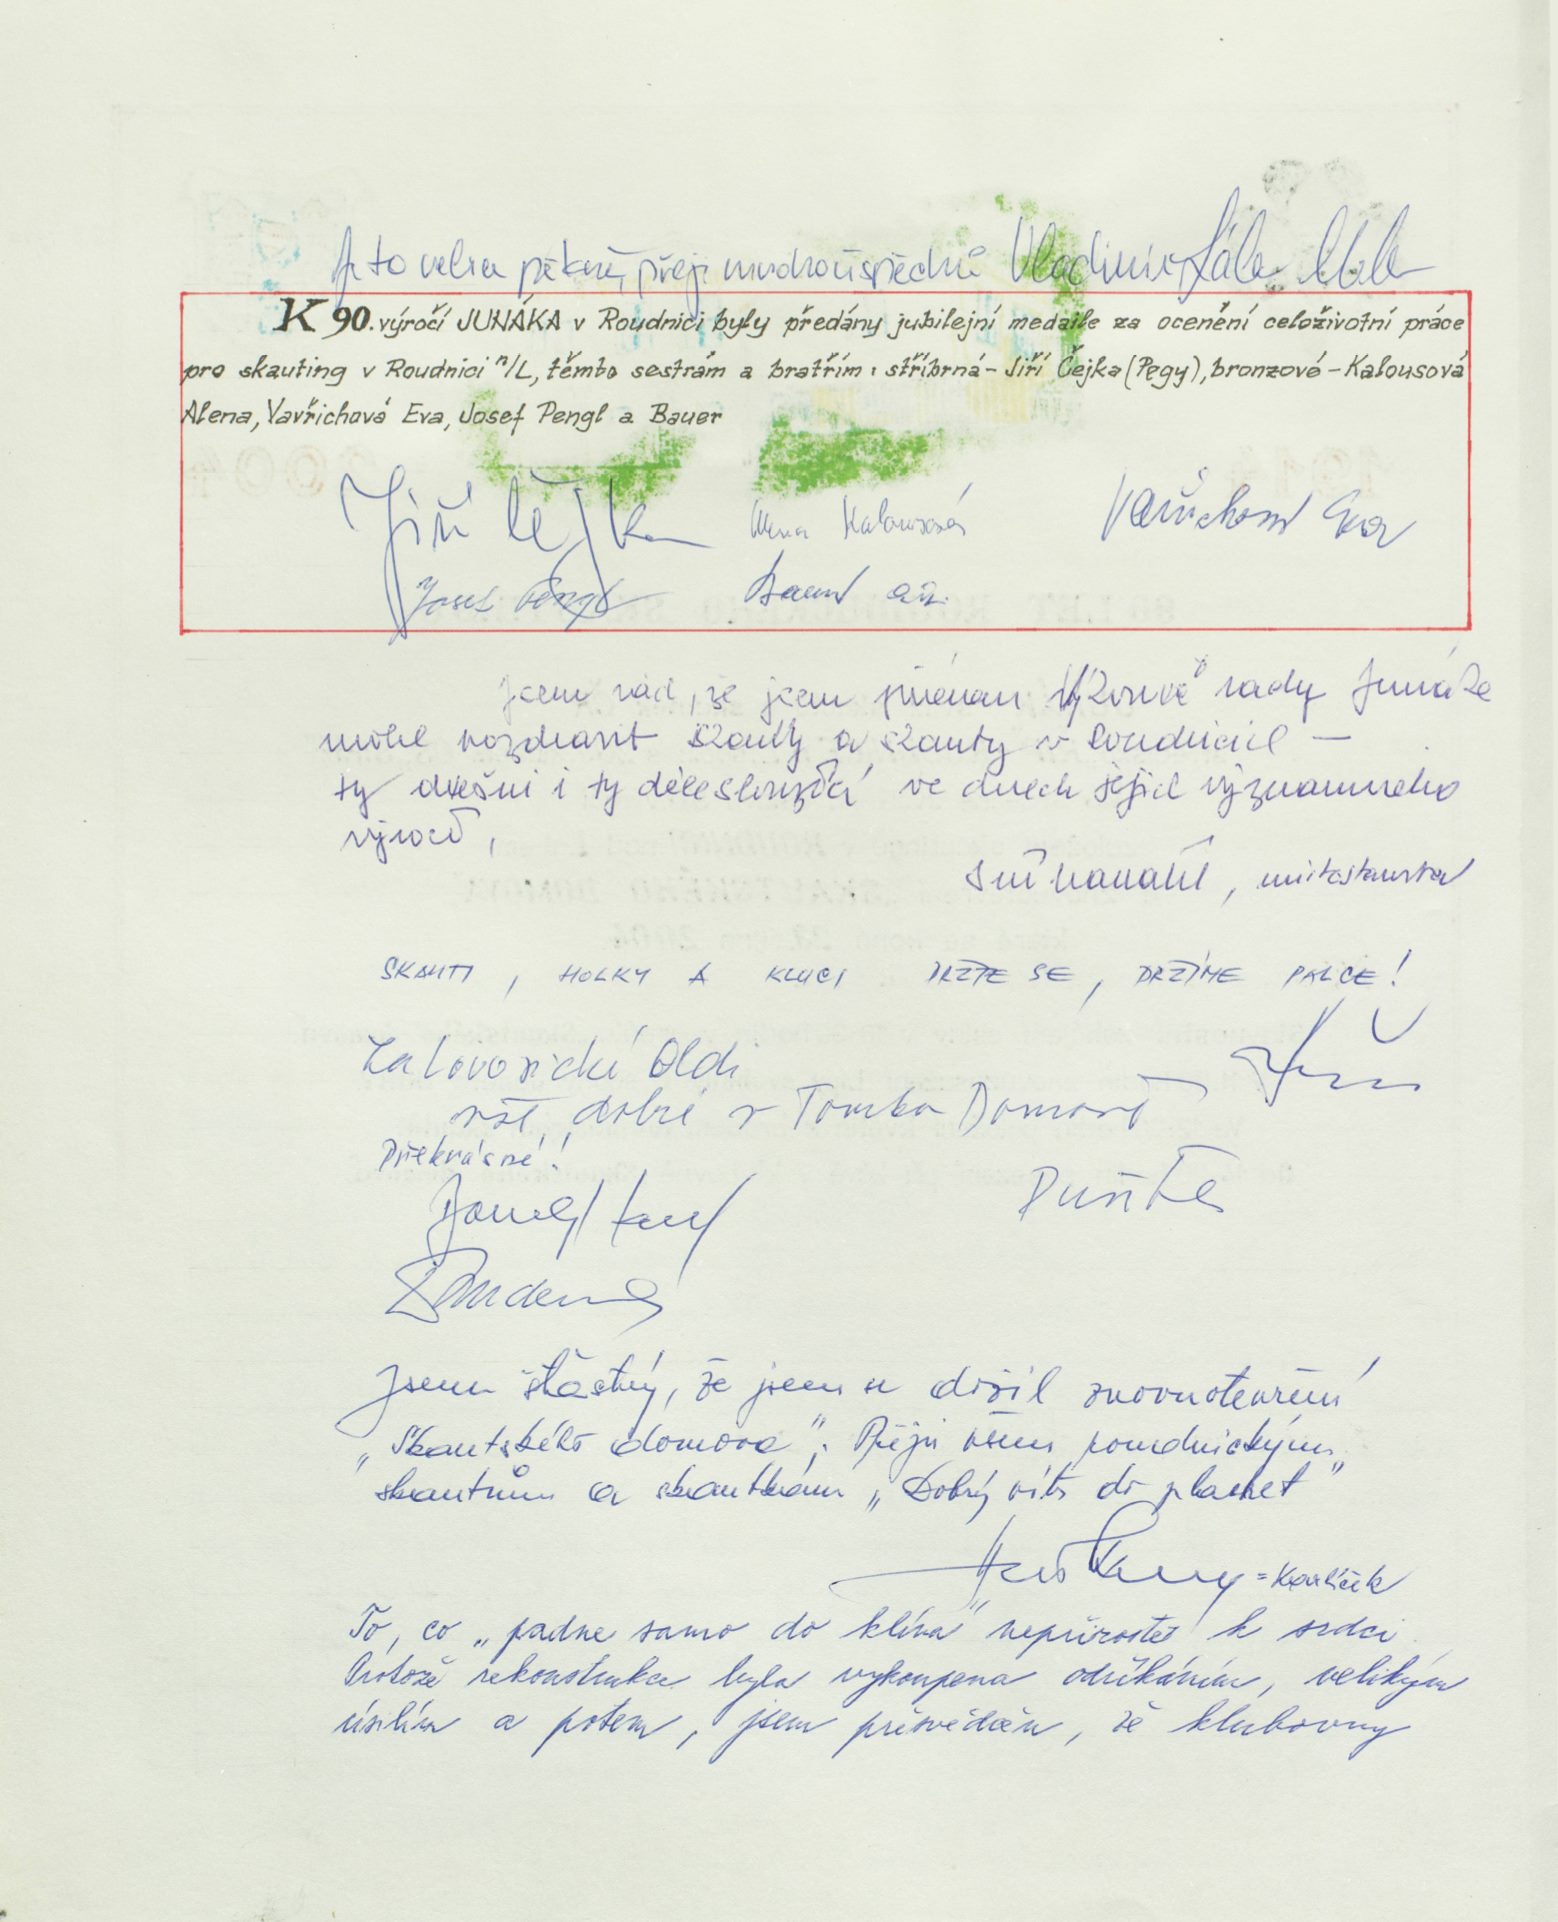 Je to velice pěkné, přeji mnoho úspěchů Vladimír
K 90. výročí JUNÁKA v Roudnici byly předány jubilejní medaile za ocenění celoživotní práce
pro skauting v Roudnici n/L, těmto sestrám a bratřím: stříbrná - Jiří Čejka (Pegy), bronzové - Kalousová
Alena, Vavřichová Eva, Josef Pengl a Bauer
Jiří Čejka Alena Kalousová Vavřichová Eva
Josef Pengl Bauer
Jsem rád, že jsem jménem Výkonné rady Junáka
mohl pozdravit skautky a skauty v Roudnici –
ty dnešní i ty déle sloužící ve dnech jejich významného
výročí,
místostarosta
SKAUTI, HOLKY A KLUCI DRŽTE SE, DRŽÍME PALCE!
Za Lovosické Oldi
vše dobré v Tomto Domově
Překrásné!
Jsem šťastný, že jsem se dožil znovuotevření
„Skautského domova". Přeji všem roudnickým
skautům a skautkám „Dobrý vítr do plachet"
= Karlíček
To, co „padne samo do klína" nepřiroste k srdci.
Protože rekonstrukce byla vykoupena odříkáním, velikým
úsilím a potem, jsem přesvědčen, že klubovny